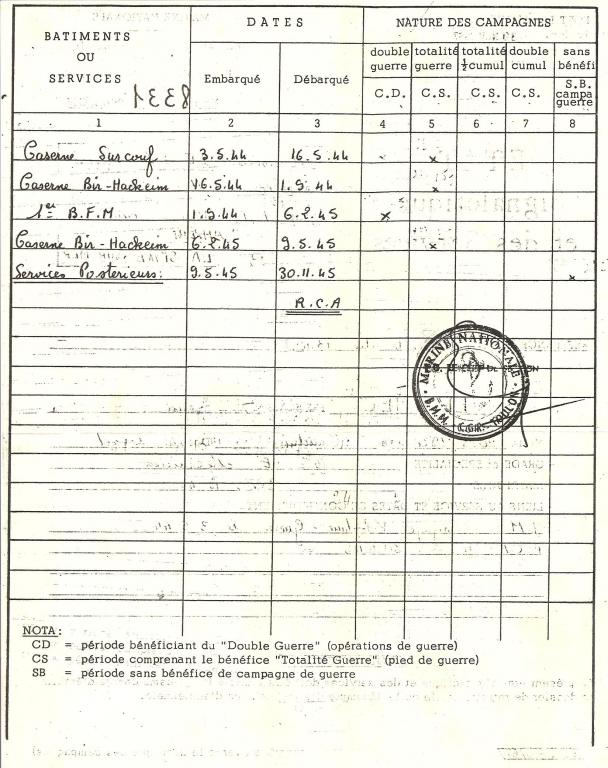 DATES
NATURE DES CAMPAGNES
BATIMENTS
OU
SERVICES
Embarqué
Débarqué
double guerre
totalité guerre
totalité ½ cumul
double cumul
sans bénéfi
C.D.
C.S.
C.S.
C.S.
S.B. campa guerre
1 2 3 4 5 6 7 8
Caserne Surcouf 3.5.44 16.5.44 x
Caserne Bir-Hackeim 16.5.44 1.9.44 x
1er B.F.M 1.9.44 6.2.45 x
Caserne Bir-Hackeim 6.2.45 9.5.45 x
Services Posterieurs: 9.5.45 30.11.45 x
R.C.A
MARINE NATIONALE
B.M.M. C.G.R. TOULON
NOTA :
CD = période bénéficiant du "Double Guerre" (opérations de guerre)
CS = période comprenant le bénéfice "Totalité Guerre" (pied de guerre)
SB = période sans bénéfice de campagne de guerre